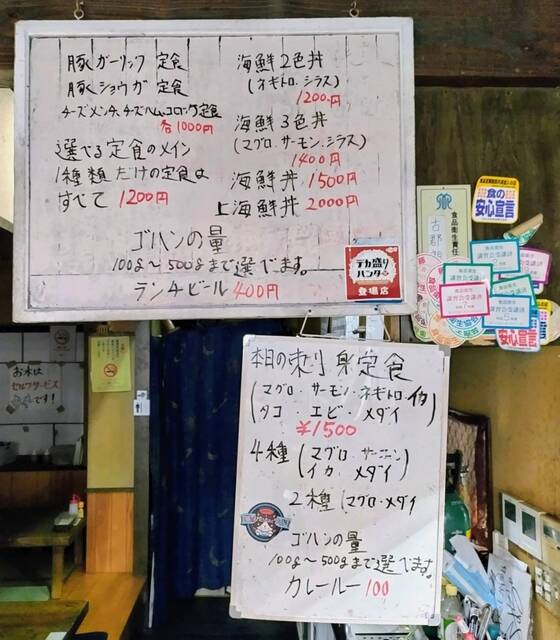 豚ガーリック 定食
豚ショウガ 定食
チーズメンチ、チーズハム、コロッケ定食
各1000円
選べる定食のメイン
1種類だけの定食は
すべて 1200円
海鮮2色丼
(ネギトロ、シラス)
1200円
海鮮3色丼
(マグロ、サーモン、シラス)
1400円
海鮮丼 1500円
上海鮮丼 2000円
ゴハンの量
100g〜500gまで選べます。
ランチビール 400円
デカ盛り
ハンター
登場店
食の
安心宣言
食品衛生責任
お水は
セルフサービス
です!
本日の刺身定食
(マグロ・サーモン・ネギトロ・イカ
タコ・エビ・メダイ)
¥1500
4種(マグロ・サーモン
イカ、メダイ)
2種(マグロ・メダイ
ゴハンの量
100g〜500gまで選べます。
カレールー100